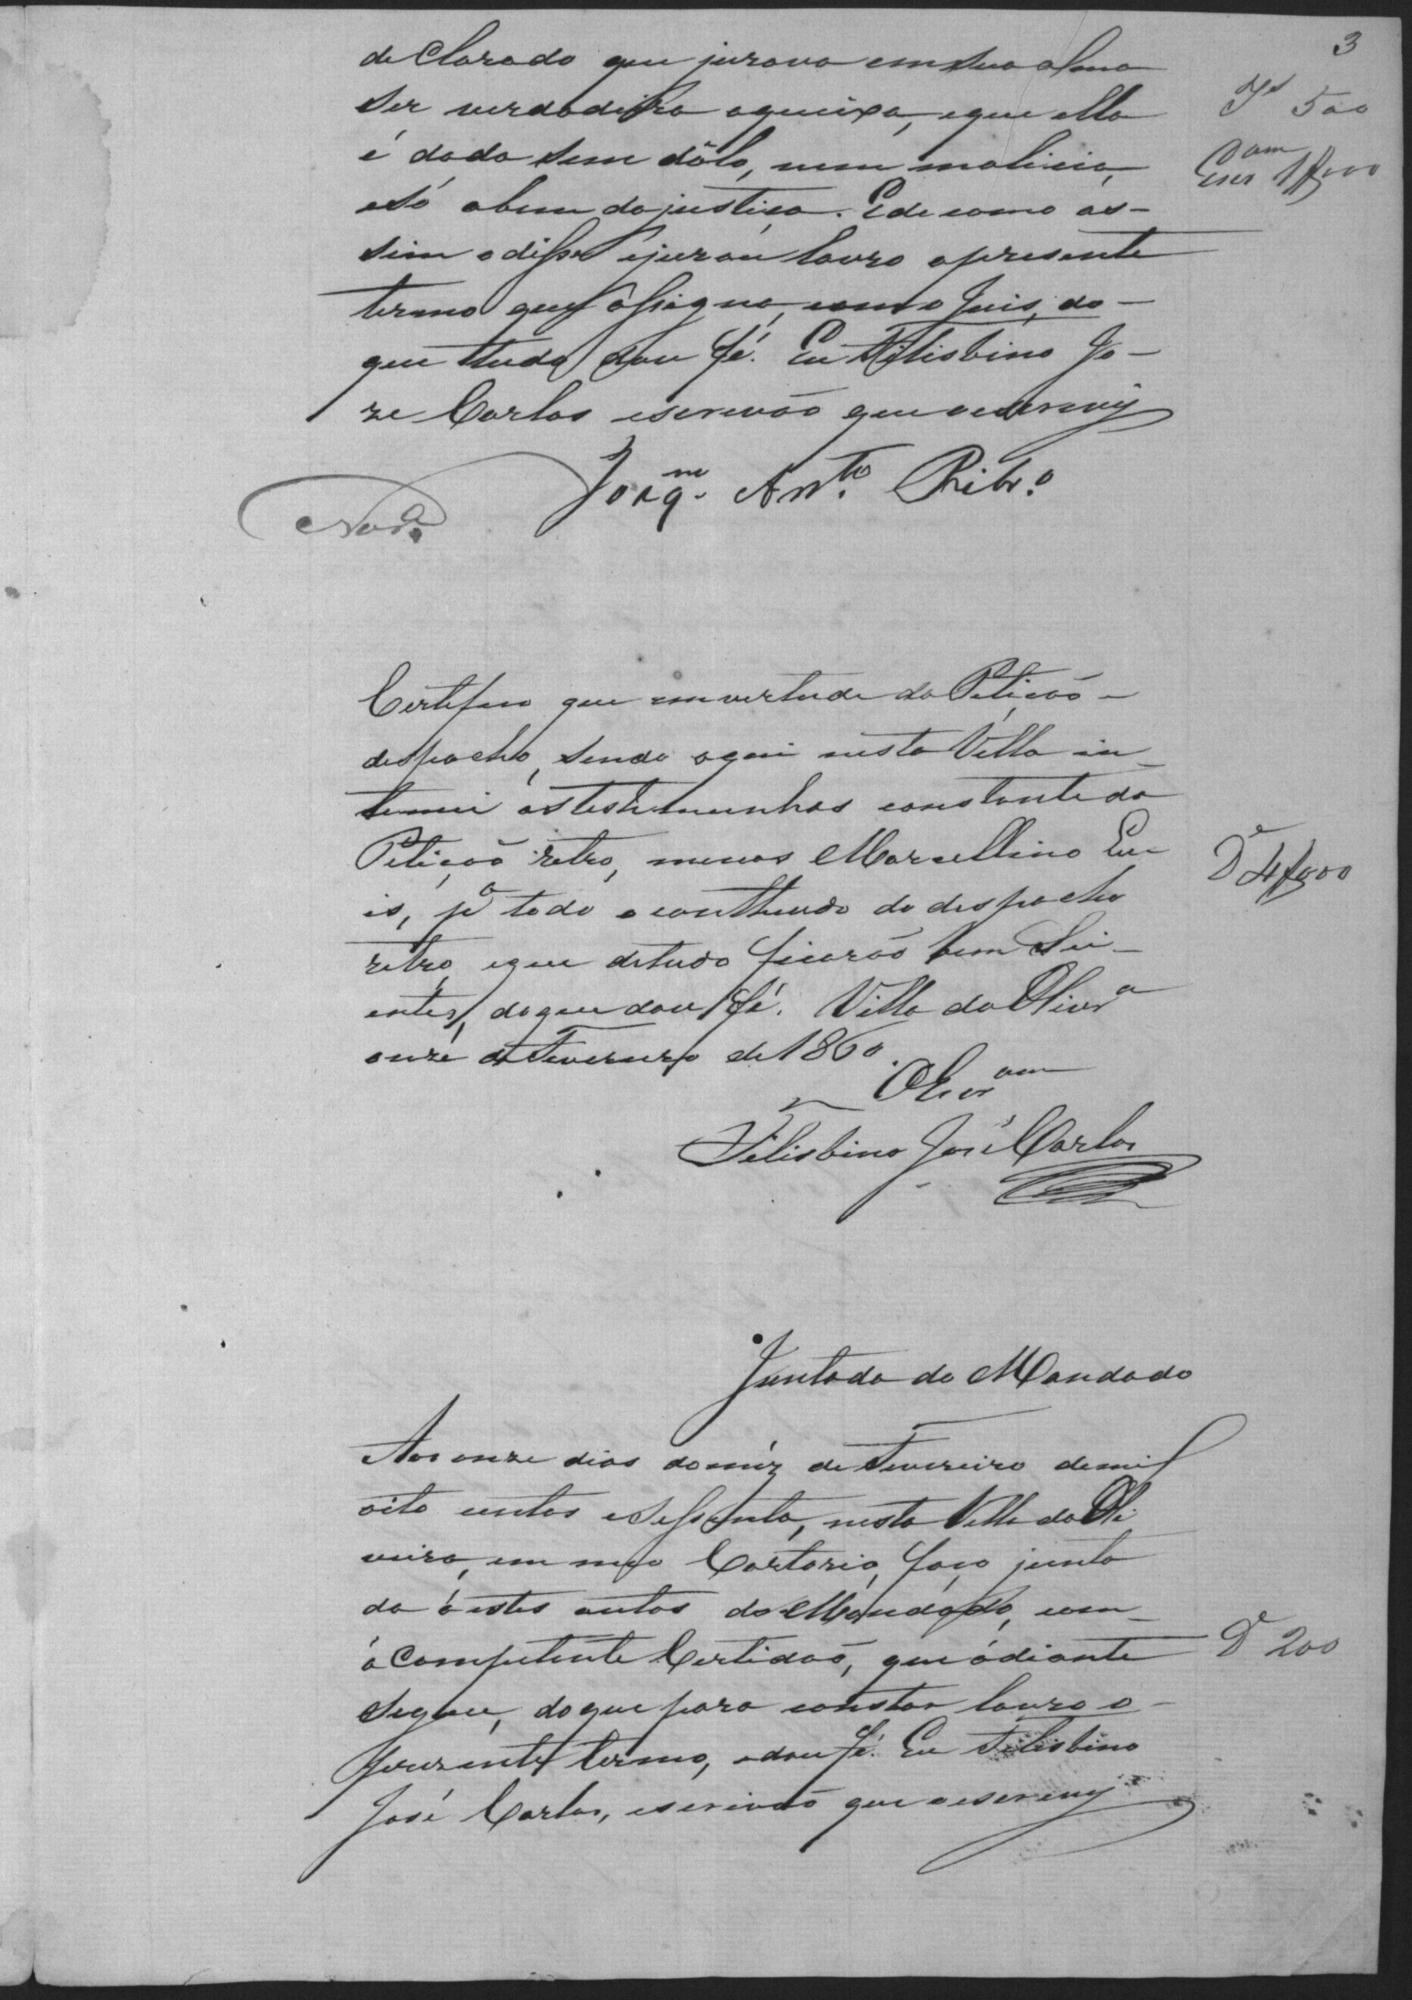 3
declarado que jurava em sua alma
ser verdadeira aqueixa, eque ella
é dada sem dólo, nem malicia,
esó abem dajustiça. Ede como as-
sim odisse ejurou lavro apresente
termo que assigna, com o Juis, do-
que tudo dou fé. Eu Felisbino Jo-
ze Carlos escrivão que oescrevy
Js 500
Escr 1$000
Joaqm. Anto. Ribro.
Certifico que em vertude da Petição
despacho, sendo aqui nesta Villa in-
temei astestemunhas constante da
Petição retro, menos Marcellino
pa todo o contheudo do despacho
retro, eque detudo ficarão bem Sci-
entes, doque dou fé. Villa da Olivra
onze de Fevereiro de 1860.
De 4$000
O Escram
Felisbino José Carlos
Juntada do Mandado
Aos onze dias domêz de Fevereiro demil
oito centos esessenta, nesta Villa da Oli
veira, em meo Cartorio, faço junta
da á estes autos do Mandado, com
a Competente Certidão, que ádiante
segue, do que para constar lavro o
prezente termo, edou fé. Eu Felisbino
José Carlos, escrivão que oescrevy
De 200